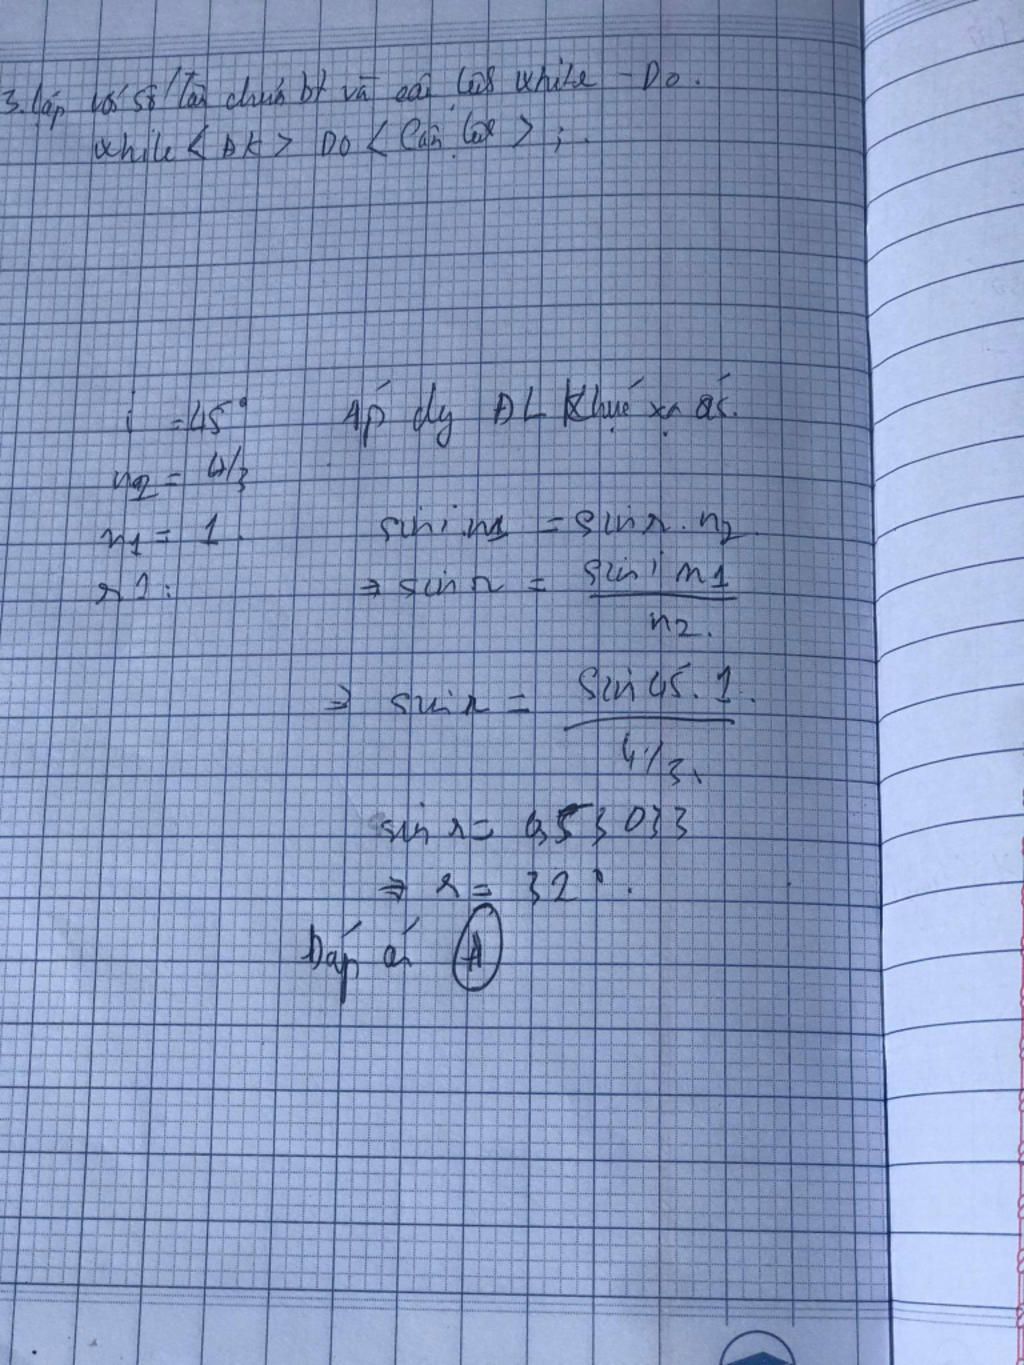 3. lặp với số lần chưa bt và câu lệnh while - Do.
while < ĐK > DO < Câu lệnh > ;
i = 45°
Áp dg ĐL Khúc xạ ás.
n2 = 4/3
n1 = 1
sin i. n1 = sin r. n2
r ? :
⇒ sin r = sin i n1 / n2.
⇒ sin r = sin 45. 1. / 4/3.
sin r = 0,53033
⇒ r = 32°.
Đáp án A